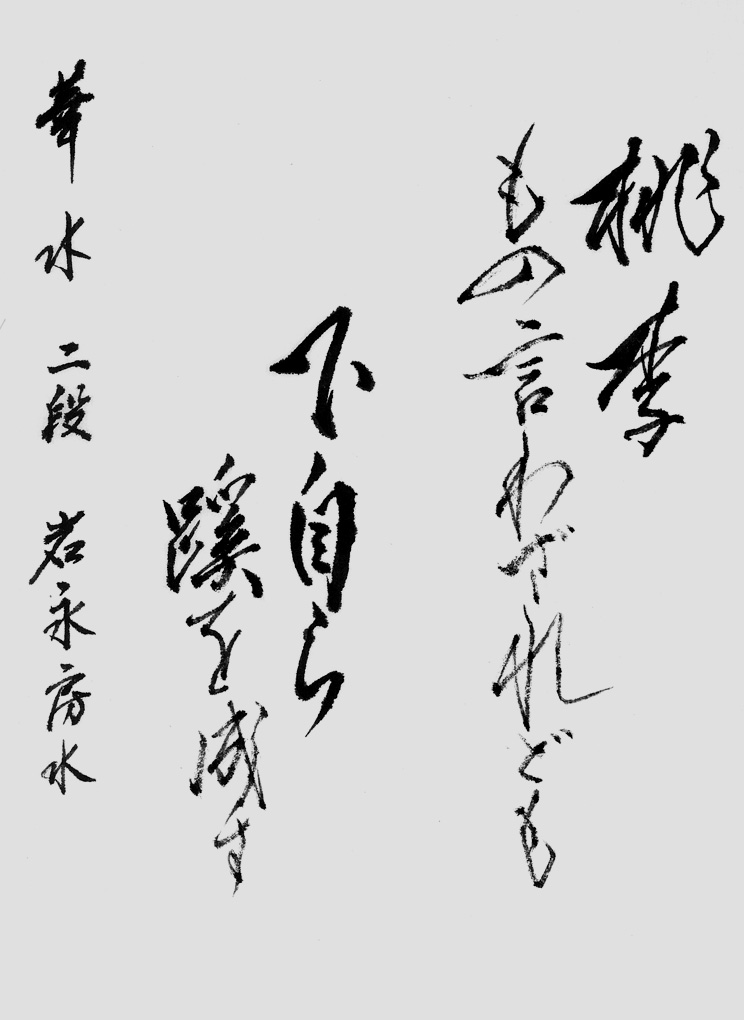 桃李
もの言わざれども
下自ら
蹊を成す
華水 二段 岩永房水